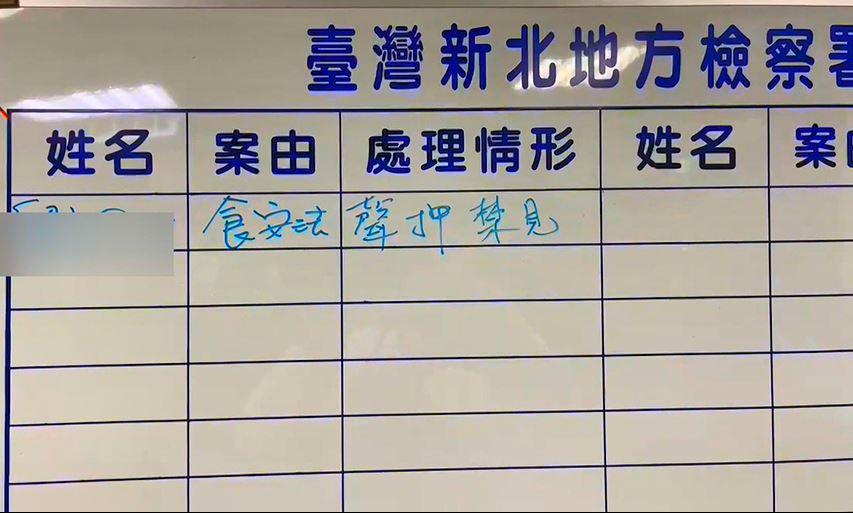 臺灣新北地方檢察署
姓名 案由 處理情形 姓名 案由
食安法 聲押禁見